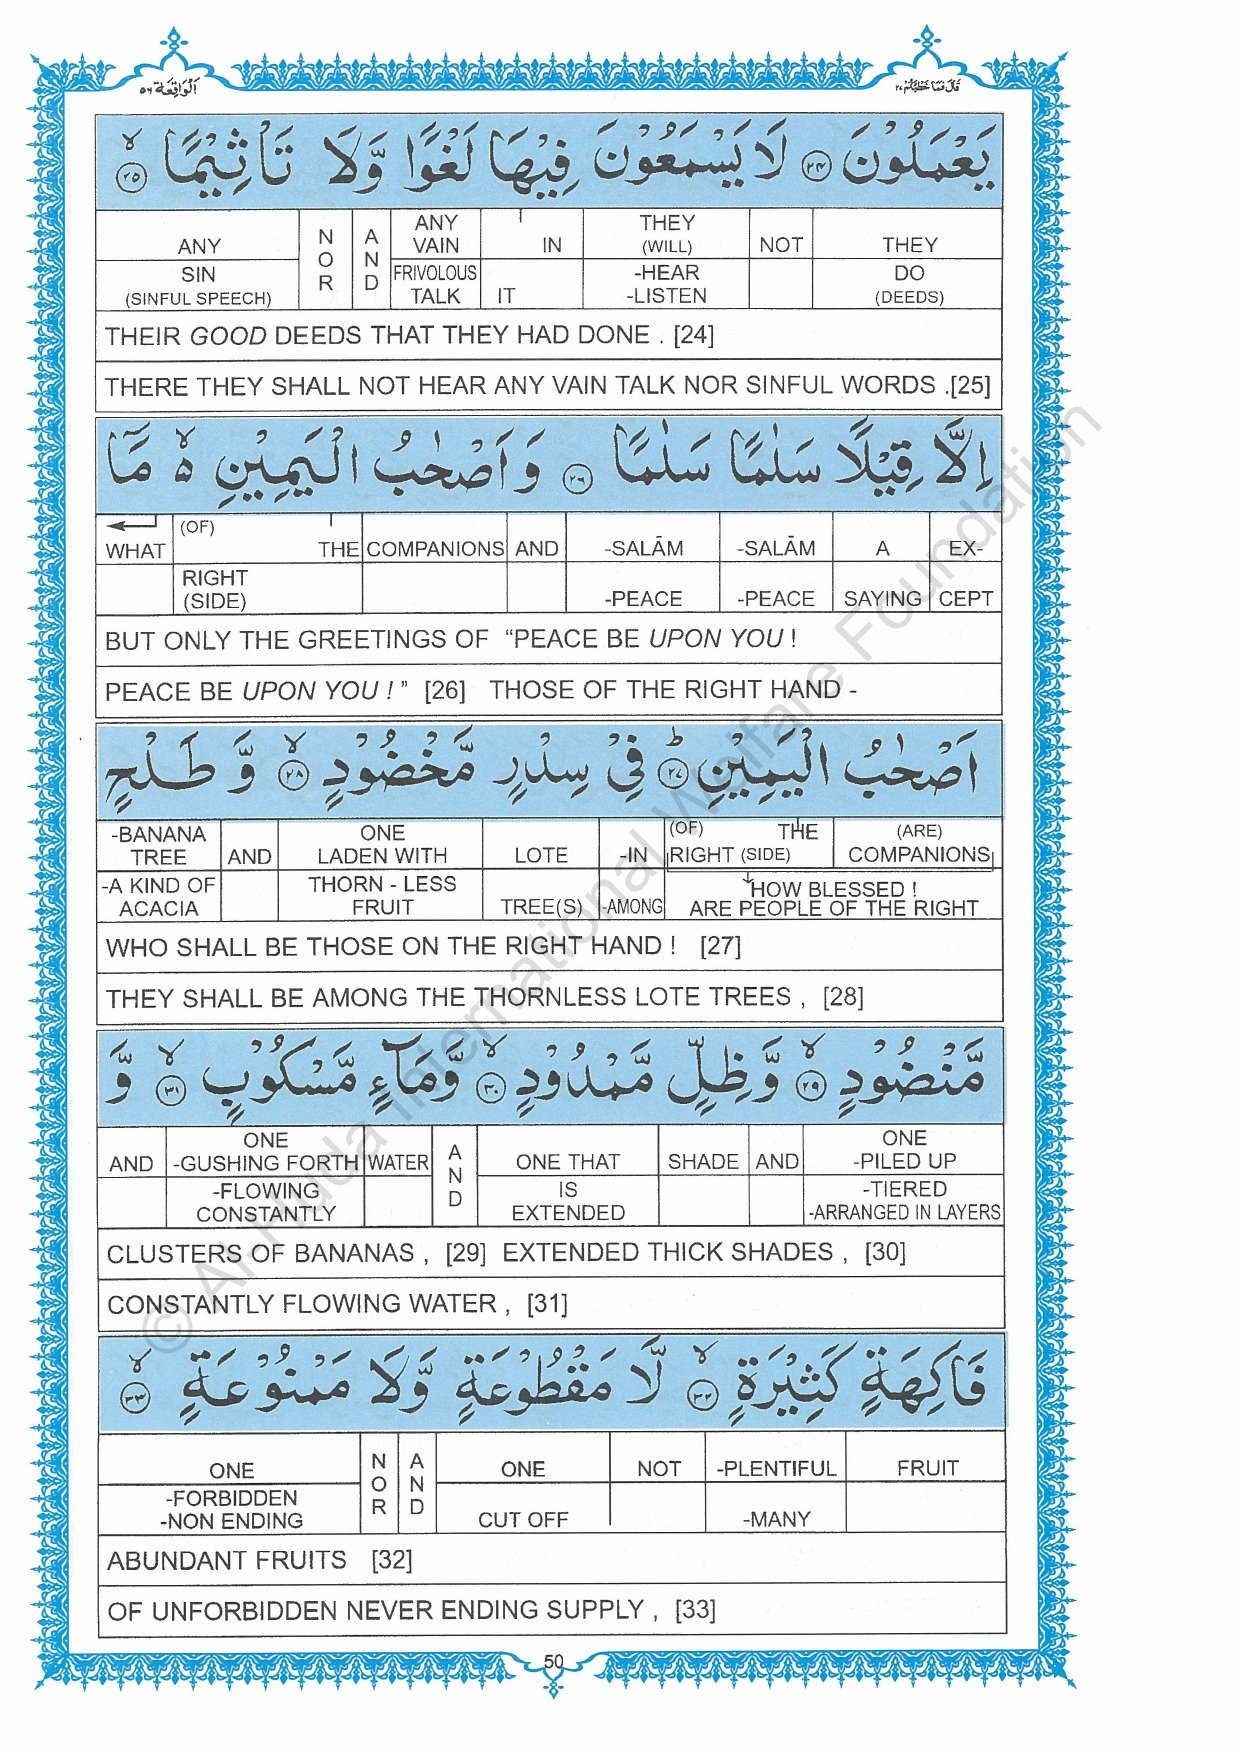 الواقعة ٥٦
قال فما خطبكم ٢٧
يَعْمَلُوْنَ ﴿٢٤﴾ لَا يَسْمَعُوْنَ فِيْهَا لَغْوًا وَّلَا تَأْثِيْمًا ﴿٢٥﴾ ۙ
ANY NOR AND ANY VAIN IN THEY (WILL) NOT THEY
SIN (SINFUL SPEECH) FRIVOLOUS TALK IT -HEAR -LISTEN DO (DEEDS)
THEIR GOOD DEEDS THAT THEY HAD DONE . [24]
THERE THEY SHALL NOT HEAR ANY VAIN TALK NOR SINFUL WORDS .[25]
اِلَّا قِيْلًا سَلٰمًا سَلٰمًا ﴿٢٦﴾ وَاَصْحٰبُ الْيَمِيْنِ ۙ مَاۤ
WHAT (OF) THE COMPANIONS AND -SALĀM -SALĀM A EX-
RIGHT (SIDE) -PEACE -PEACE SAYING CEPT
BUT ONLY THE GREETINGS OF “PEACE BE UPON YOU !
PEACE BE UPON YOU ! ” [26] THOSE OF THE RIGHT HAND -
اَصْحٰبُ الْيَمِيْنِ ﴿٢٧﴾ ؕ فِيْ سِدْرٍ مَّخْضُوْدٍ ﴿٢٨﴾ ۙ وَّ طَلْحٍ
-BANANA TREE AND ONE LADEN WITH LOTE -IN (OF) THE RIGHT (SIDE) (ARE) COMPANIONS
-A KIND OF ACACIA THORN - LESS FRUIT TREE(S) -AMONG HOW BLESSED ! ARE PEOPLE OF THE RIGHT
WHO SHALL BE THOSE ON THE RIGHT HAND ! [27]
THEY SHALL BE AMONG THE THORNLESS LOTE TREES , [28]
مَّنْضُوْدٍ ﴿٢٩﴾ ۙ وَّظِلٍّ مَّمْدُوْدٍ ﴿٣٠﴾ ۙ وَّمَآءٍ مَّسْكُوْبٍ ﴿٣١﴾ ۙ وَّ
AND ONE -GUSHING FORTH WATER AND ONE THAT SHADE AND ONE -PILED UP
-FLOWING CONSTANTLY IS EXTENDED -TIERED -ARRANGED IN LAYERS
CLUSTERS OF BANANAS , [29] EXTENDED THICK SHADES , [30]
CONSTANTLY FLOWING WATER , [31]
فَاكِهَةٍ كَثِيْرَةٍ ﴿٣٢﴾ ۙ لَّا مَقْطُوْعَةٍ وَّلَا مَمْنُوْعَةٍ ﴿٣٣﴾ ۙ
ONE NOR AND ONE NOT -PLENTIFUL FRUIT
-FORBIDDEN -NON ENDING CUT OFF -MANY
ABUNDANT FRUITS [32]
OF UNFORBIDDEN NEVER ENDING SUPPLY , [33]
50
© Al-Huda International Welfare Foundation